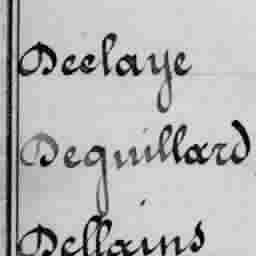 Deelaye
Deguillard
Dellains